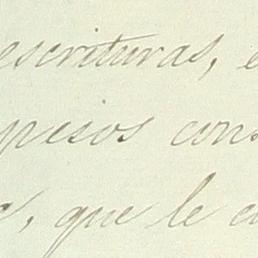 escrituras,
pesos
que le